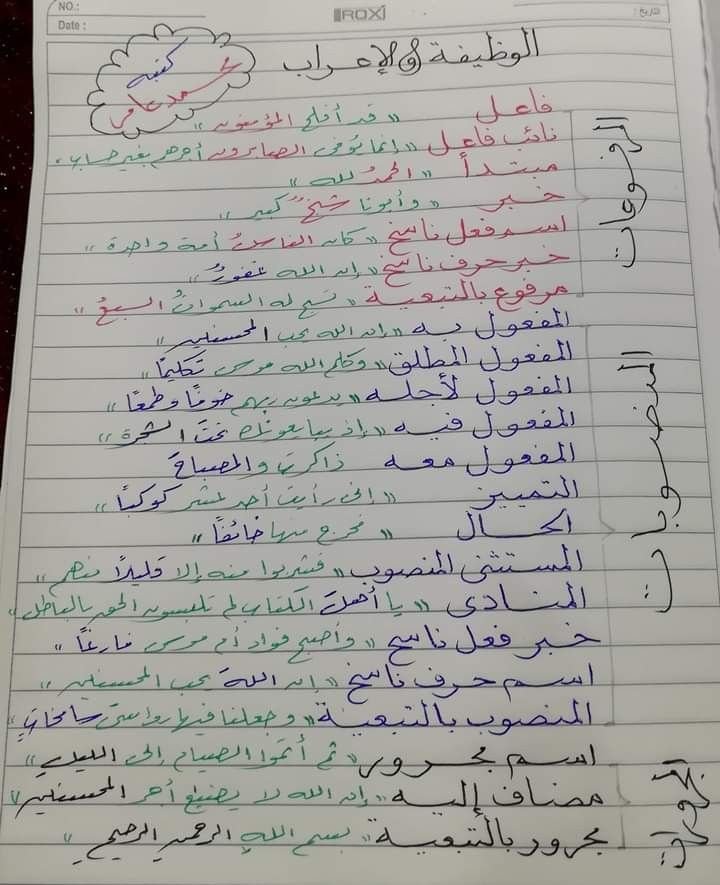 NO.:
Date :
IROXI
التاريخ :
الوظيفة في الإعراب
كتبه
محمد عامر
المرفوعات
فاعل « قد أفلح المؤمنون »
نائب فاعل « إنما يوفى الصابرون أجرهم بغير حساب »
مبتدأ « الحمدُ لله »
خبر « وأبونا شيخٌ كبير »
اسم فعل ناسخ « كان الناسُ أمة واحدة »
خبر حرف ناسخ « إن الله غفورٌ »
مرفوع بالتبعية « تسبح له السمواتُ السبعُ »
المنصوبات
المفعول به « إن الله يحب المحسنين »
المفعول المطلق « وكلم الله موسى تكليمًا »
المفعول لأجله « يدعون ربهم خوفًا وطمعًا »
المفعول فيه « إذ يبايعونك تحتَ الشجرة »
المفعول معه ذاكرت والمصباحَ
التمييز « إنى رأيت أحد عشر كوكبًا »
الحال « فخرج منها خائفًا »
المستثنى المنصوب « فشربوا منه إلا قليلًا منهم »
المنادى « يا أهلَ الكتاب لم تلبسون الحق بالباطل »
خبر فعل ناسخ « وأصبح فواد أم موسى فارغًا »
اسم حرف ناسخ « إن اللهَ يحب المحسنين »
المنصوب بالتبعية « وجعلنا فيها رواسىَ شامخاتٍ »
المجرورات
اسم مجرور « ثم أتموا الصيام إلى الليلِ »
مضاف إليه « إن الله لا يضيع أجر المحسنين »
مجرور بالتبعية « بسم اللهِ الرحمنِ الرحيمِ »